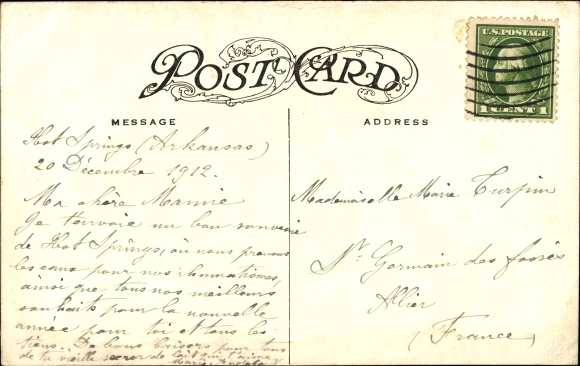 POST CARD
U.S. POSTAGE
1 CENT 1
MESSAGE
ADDRESS
Hot Springs (Arkansas)
20 Décembre 1912.
Ma chère Mannie
Je t'envoie un bon souvenir
de Hot Springs, où nous prenons
les eaux pour nos rhumatismes,
ainsi que tous nos meilleurs
souhaits pour la nouvelle
année pour toi et tous les
tiens. De bons baisers pour tous
de ta vieille soeur de qui t'aime
Marie
Mademoiselle Marie Turpin
St Germain des fossés
Allier
(France)